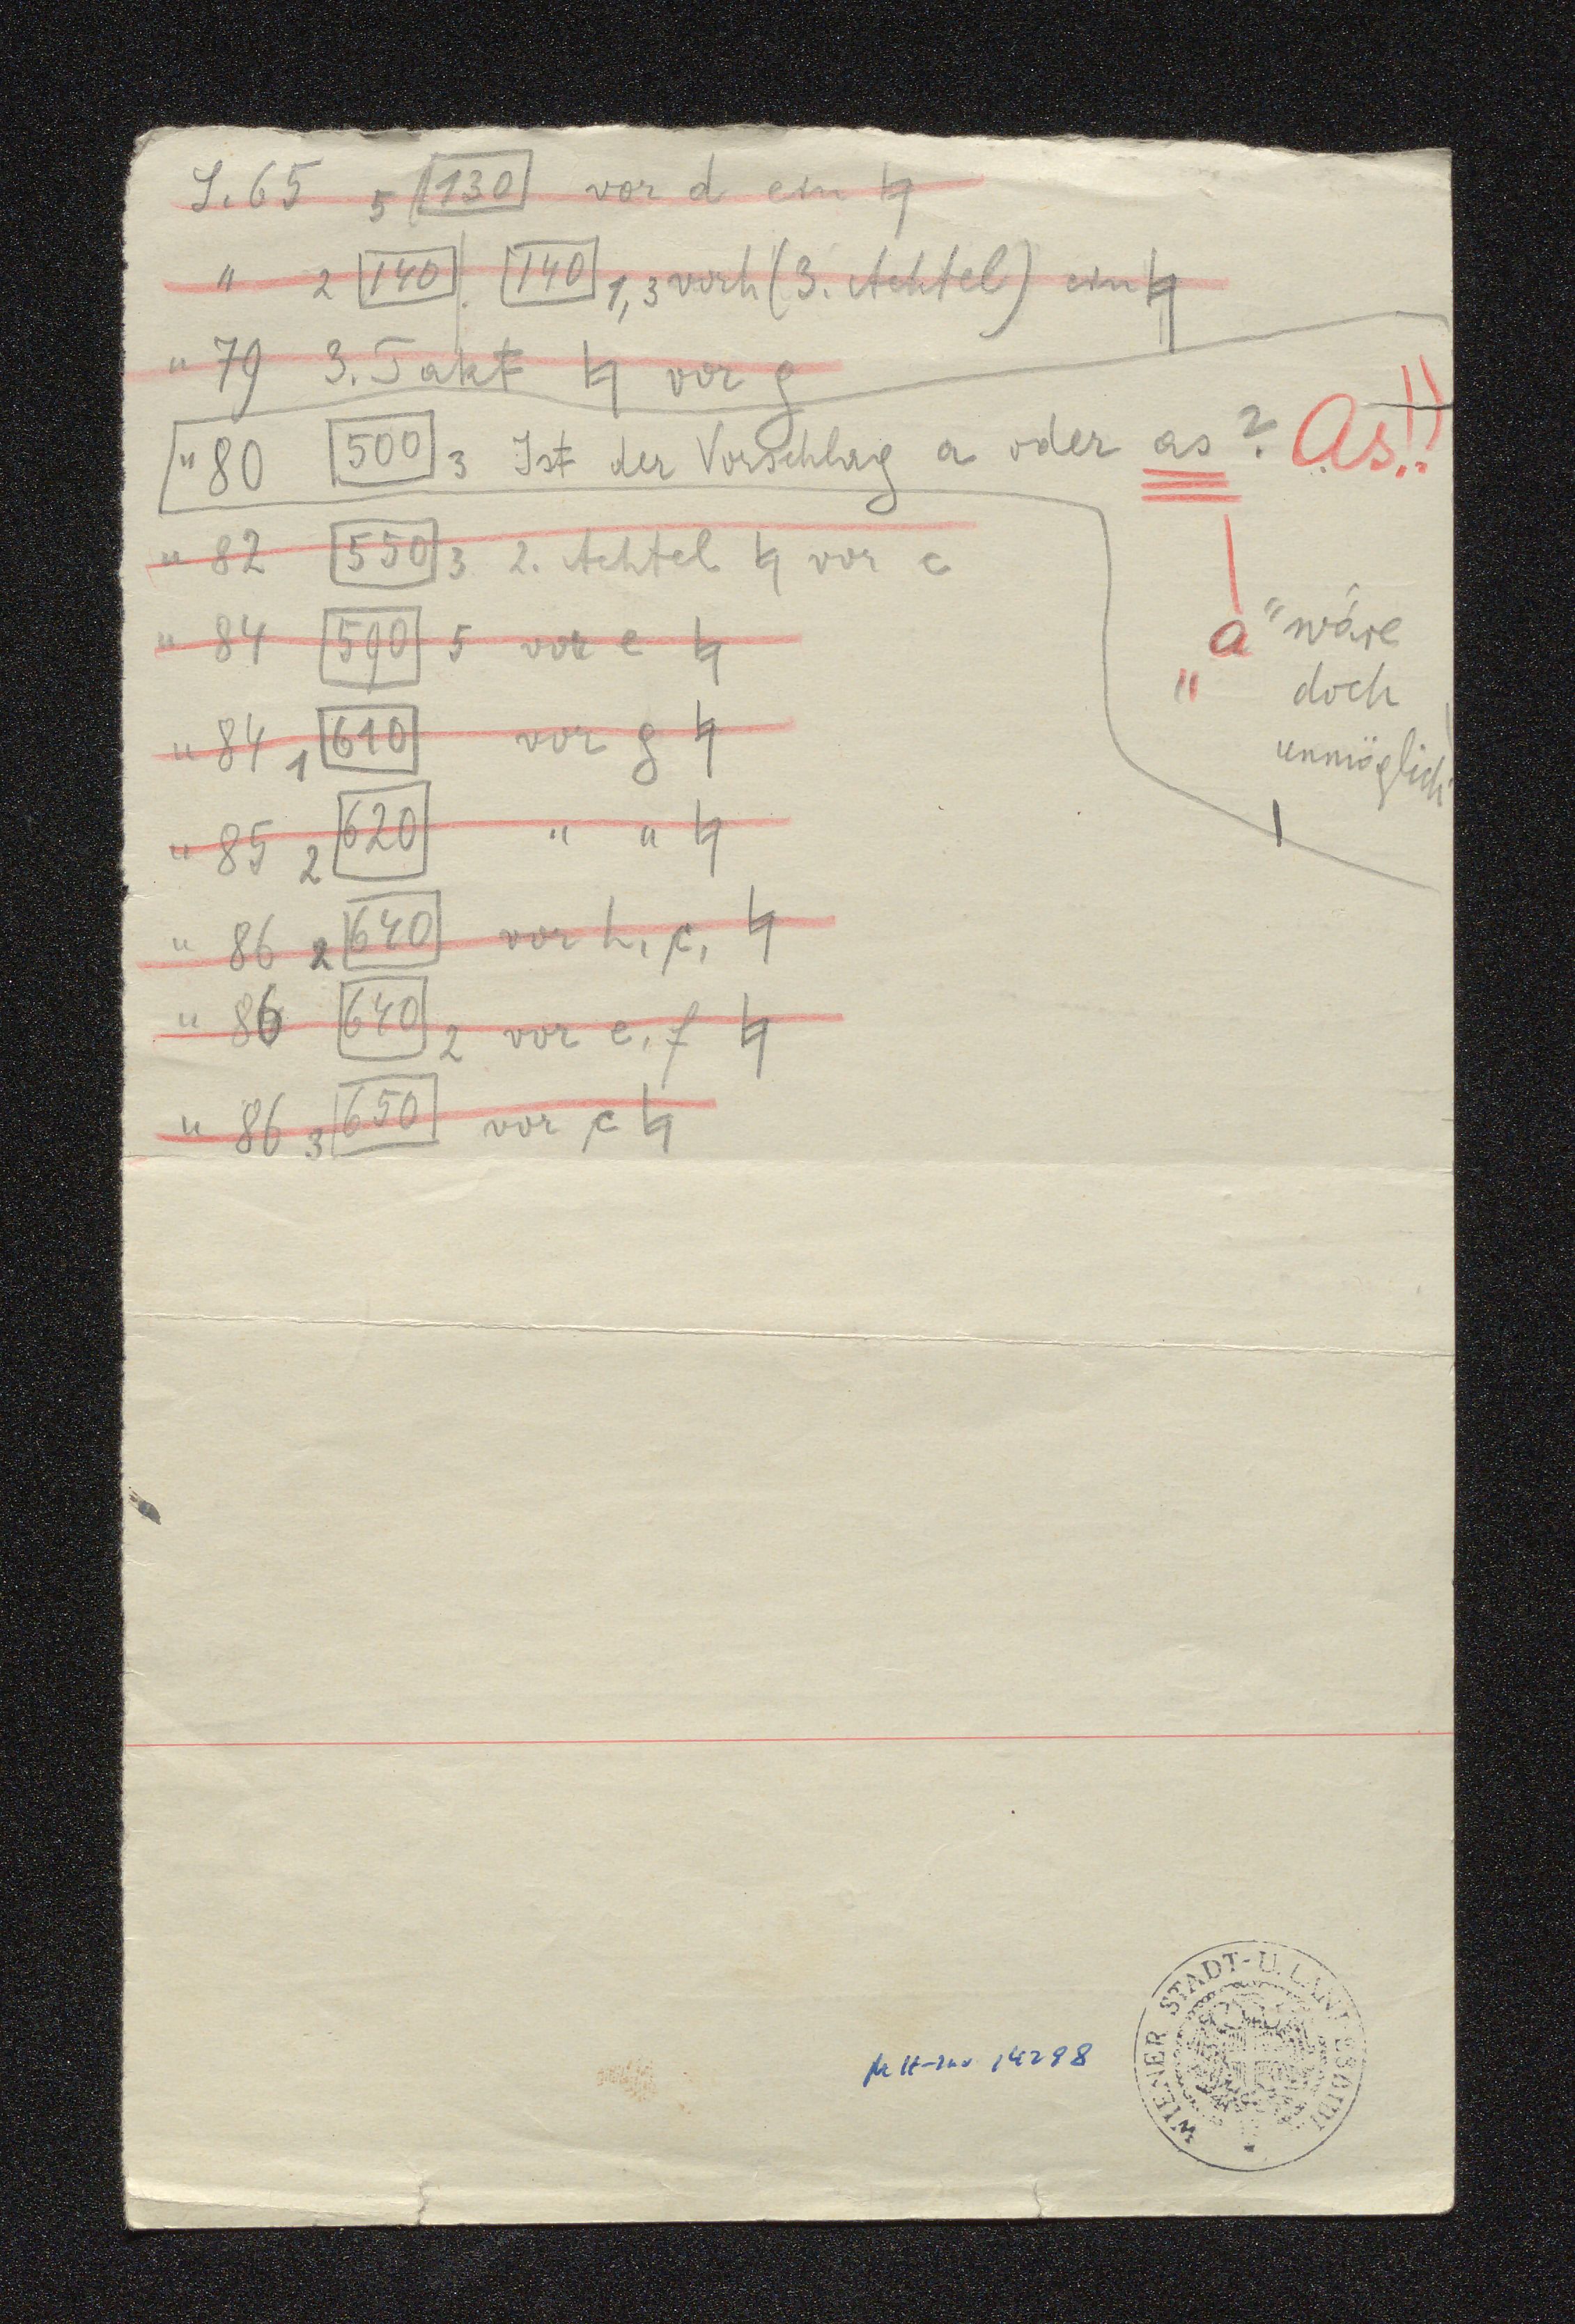 S. 65 5 130 vor d ein ♮
" 2 140 . 140 1, 3 vor h (3. Achtel) ein ♮
" 79 3. Takt ♮ vor g
" 80 500 3 Ist der Vorschlag a oder as ? As!!
" 82 550 3 2. Achtel ♮ vor c
" 84 590 5 vor e ♮
"a" wäre
doch
unmöglich
" 84 1 610 vor g ♮
" 85 2 620 " " ♮
" 86 2 640 vor h, c, ♮
" 86 640 2 vor e, f ♮
" 86 3 650 vor c ♮
14298
WIENER STADT- U. LANDESBIBL